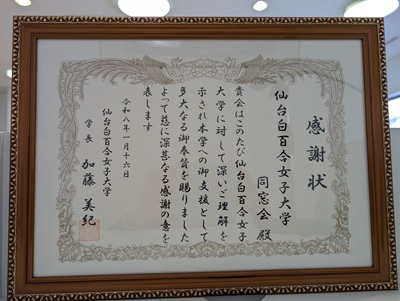 感謝状
仙台白百合女子大学
同窓会 殿
貴会はこのたび仙台白百合女子
大学に対して深いご理解を
示され本学への御支援として
多大なる御奉賛を賜りました
よって茲に深甚なる感謝の意を
表します
令和八年一月十六日
仙台白百合女子大学
学長 加藤美紀